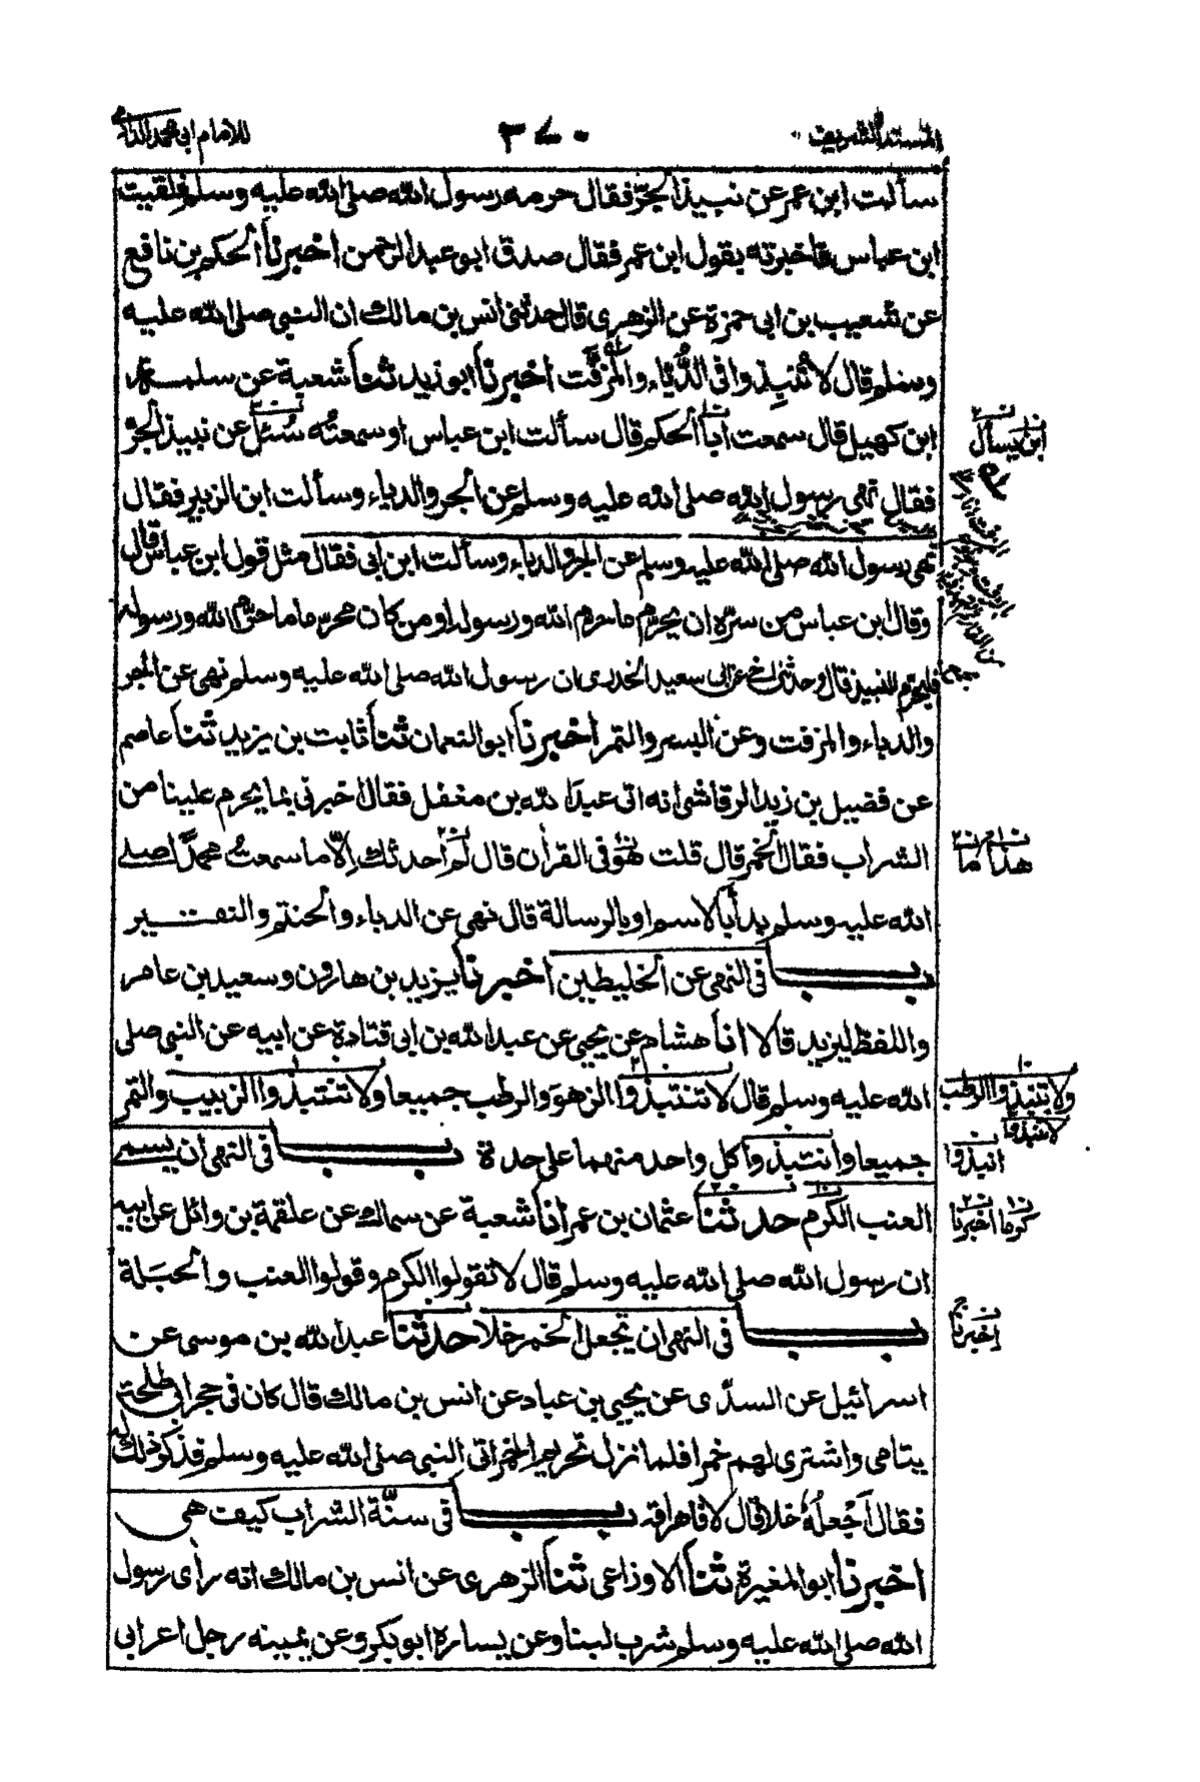 المسند الشريف
٣٧٠
للامام ابی محمد الدارمی
سألت ابن عمر عن نبيذ الجرّ فقال حرمه رسول الله صلى الله عليه وسلم فلقيت
ابن عباس فاخبرته بقول ابن عمر فقال صدق ابو عبد الرحمن اخبرنا الحكم بن نافع
عن شعيب بن ابی حمزة عن الزهری قال حدثنی انس بن مالك ان النبی صلى الله عليه
وسلم قال لا تنبذوا فی الدُّبَّاء والمُزفَّت اخبرنا ابو زيد ثنا شعبة عن سلمة
ابن كهيل قال سمعت أبا الحكم قال سألت ابن عباس او سمعتُه سُئل عن نبيذ الجرّ
ابن يسأل
فقال نهى رسول الله صلى الله عليه وسلم عن الجر والدباء وسألت ابن الزبير فقال
نهى رسول الله صلى الله عليه وسلم عن الجر والدباء وسألت ابن ابی فقال مثل قول ابن عباس قال
وقال ابن عباس من سرّه ان يحرّم ما حرم الله ورسوله او من كان محرما ما حرّم الله ورسوله
فليحرّم النبيذ قال وحدثنی اخی عن ابی سعيد الخدری ان رسول الله صلى الله عليه وسلم نهى عن الجر
والدباء والمزفت وعن البسر والتمر اخبرنا ابو النعمان ثنا ثابت بن يزيد ثنا عاصم
عن فضيل بن زيد الرقاشی انه اتى عبد الله بن مغفل فقال اخبرنی بما يحرم علينا من
الشراب فقال الخمر قال قلت هو فی القراٰن قال لَم أحدثك إلّا ما سمعتُ محمدًا صلى
هذا ما
الله عليه وسلم بدأ بالاسم او بالرسالة قال نهى عن الدباء والحنتم والنقير
باب فی النهی عن الخليطين اخبرنا يزيد بن هارون وسعيد بن عامر
واللفظ ليزيد قالا انا هشام عن يحيى عن عبد الله بن ابی قتادة عن ابيه عن النبی صلى
الله عليه وسلم قال لا تنتبذوا الزهوَ والرطب جميعا ولا تنتبذوا الزبيب والتمر
ولا تنبذوا الرطب
لا تنبذوا
جميعا وانتبذوا كل واحد منهما على حدة باب فی النهی ان يسمى
انبذوا
العنب الكرم حدثنا عثمان بن عمر انا شعبة عن سماك عن علقمة بن وائل عن ابيه
كرما اخبرنا
ان رسول الله صلى الله عليه وسلم قال لا تقولوا الكرم وقولوا العنب والحبَلة
باب فی النهی ان تجعل الخمر خلا حدثنا عبد الله بن موسى عن
اخبرنا
اسرائيل عن السدّی عن يحيى بن عباد عن انس بن مالك قال كان فی حجر ابی طلحة
يتامى واشترى لهم خمرا فلما نزل تحريم الخمر اتى النبی صلى الله عليه وسلم فذكر ذلك له
فقال أجْعلُهُ خلا قال لا فاهراقه باب فی سنّة الشراب كيف هی
اخبرنا ابو المغيرة ثنا الاوزاعی ثنا الزهری عن انس بن مالك انه رأى رسول
الله صلى الله عليه وسلم شرب لبنا وعن يساره ابو بكر وعن يمينه رجل اعرابی